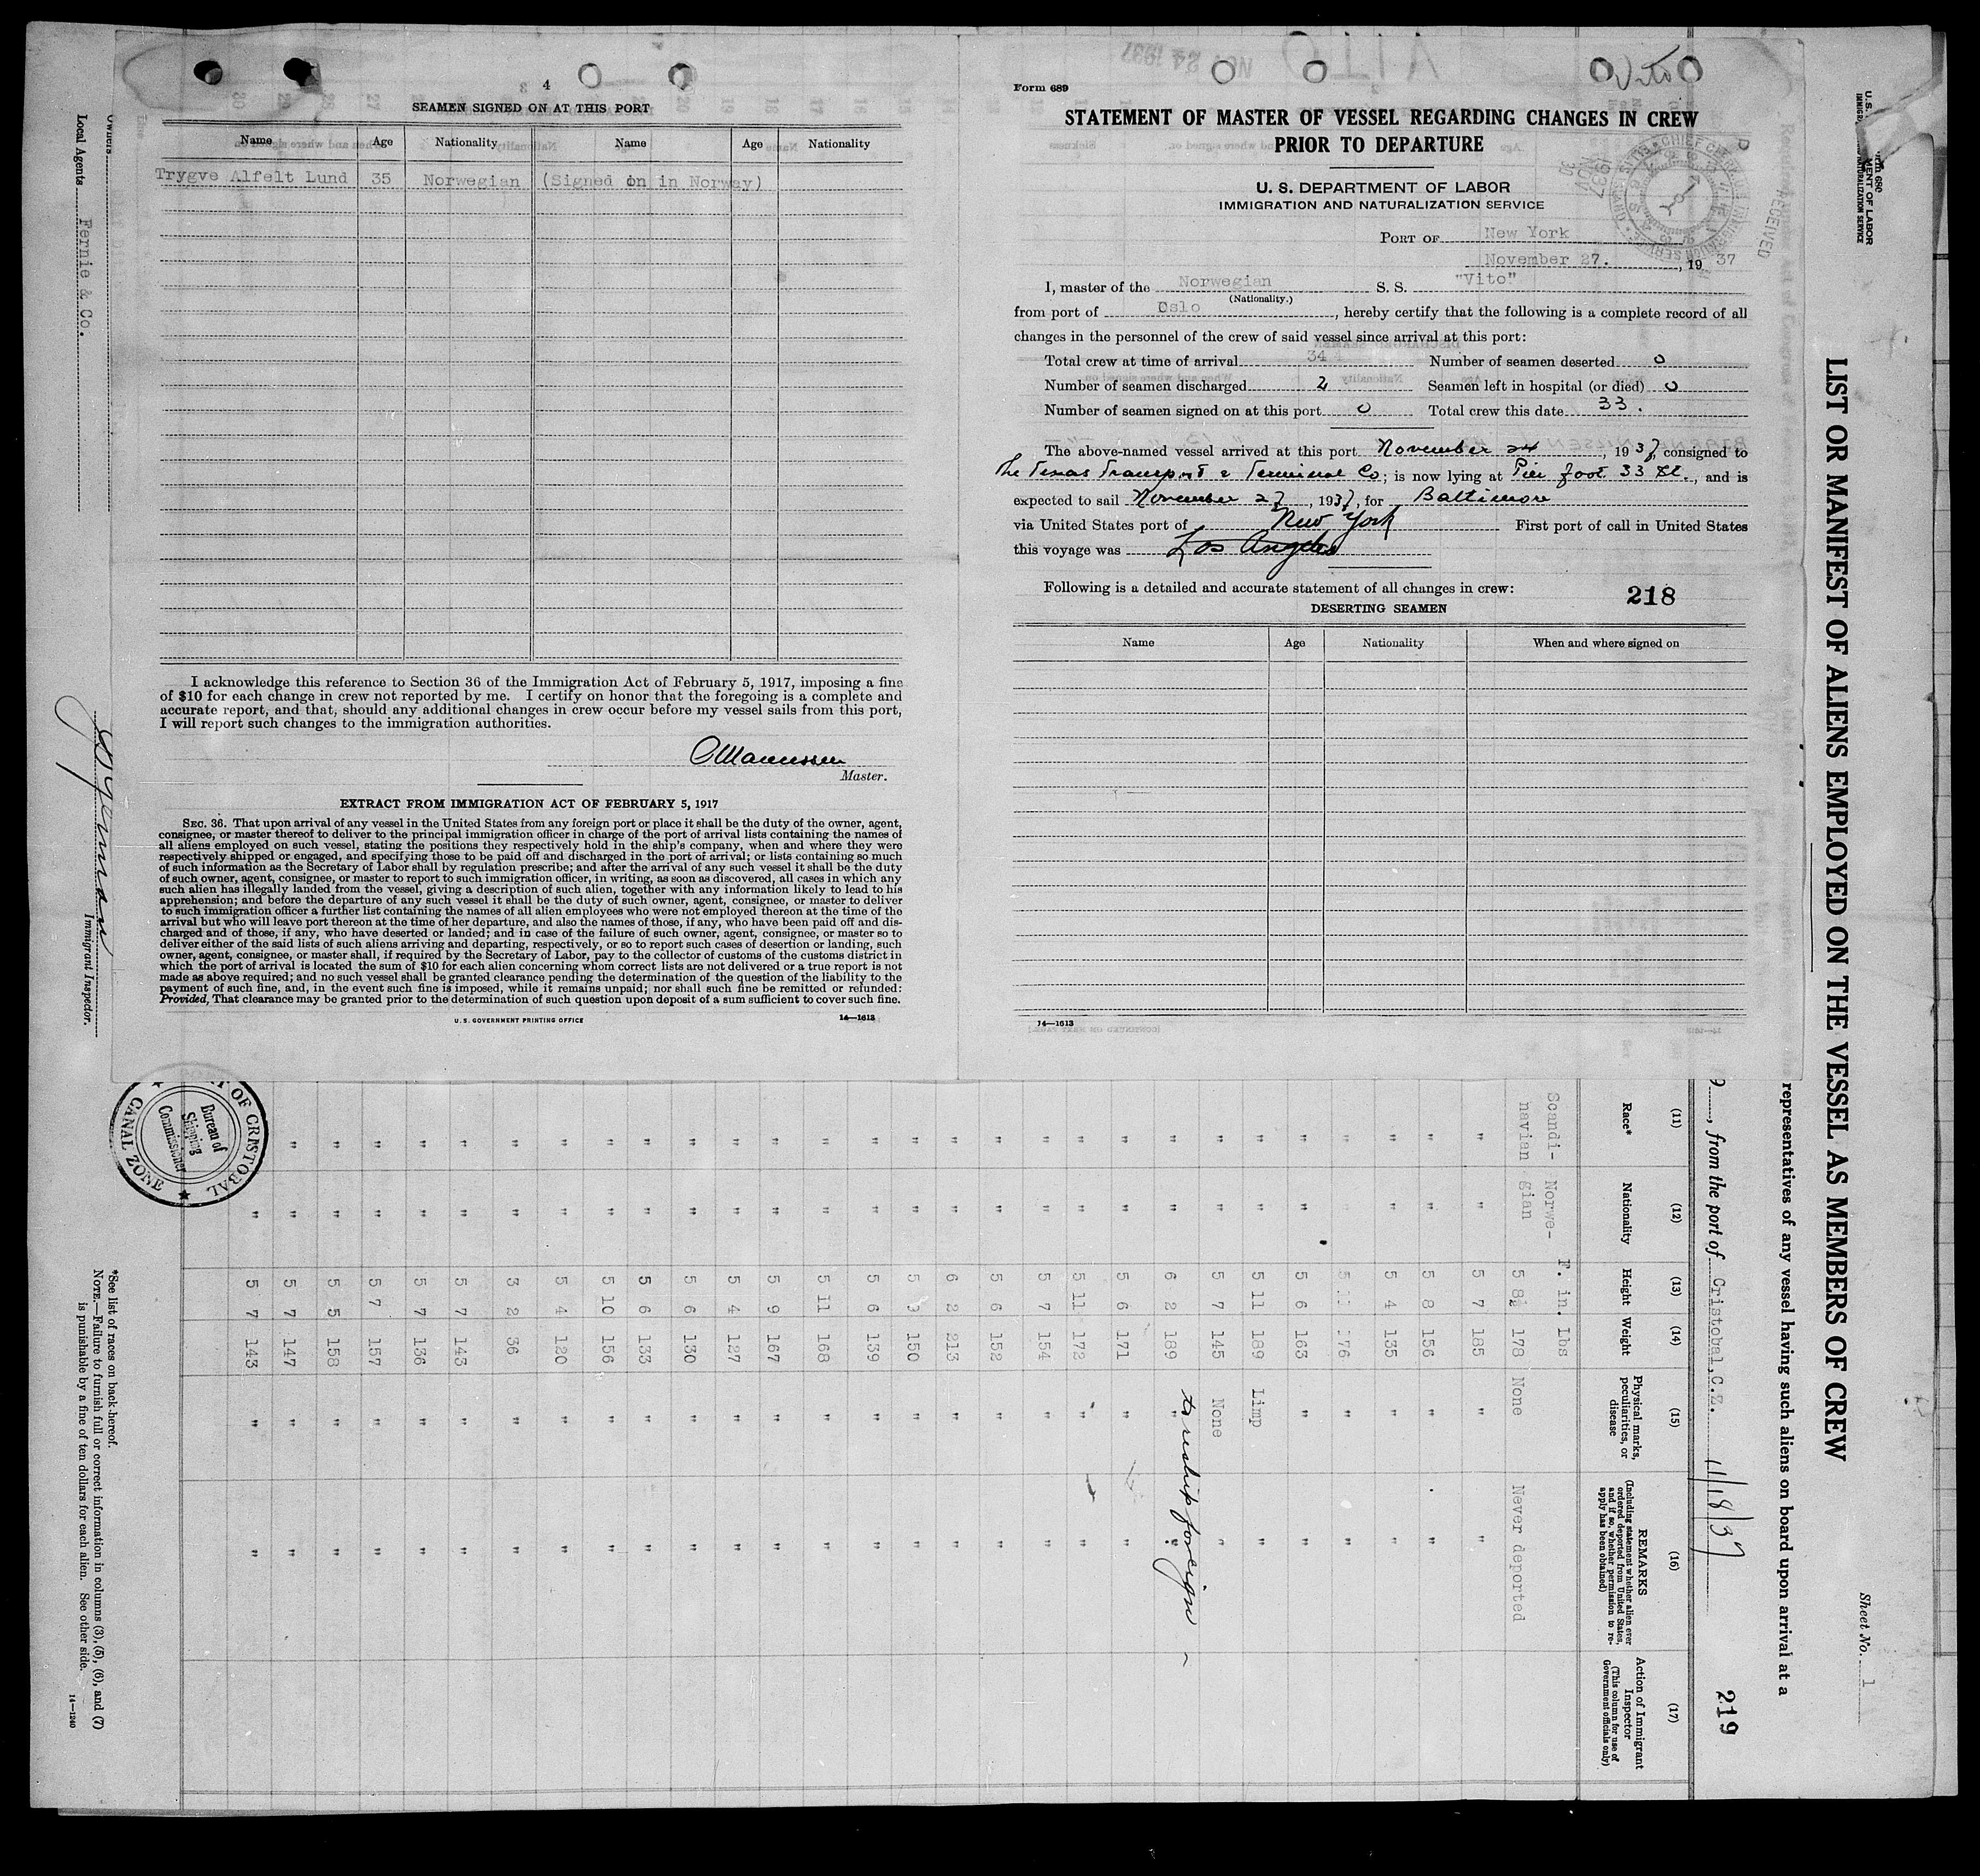 4
SEAMEN SIGNED ON AT THIS PORT
Name Age Nationality Name Age Nationality
Trygve Alfelt Lund 35 Norwegian (Signed on in Norway)
I acknowledge this reference to Section 36 of the Immigration Act of February 5, 1917, imposing a fine
of $10 for each change in crew not reported by me. I certify on honor that the foregoing is a complete and
accurate report, and that, should any additional changes in crew occur before my vessel sails from this port,
I will report such changes to the immigration authorities.
Master.
EXTRACT FROM IMMIGRATION ACT OF FEBRUARY 5, 1917
SEC. 36. That upon arrival of any vessel in the United States from any foreign port or place it shall be the duty of the owner, agent,
consignee, or master thereof to deliver to the principal immigration officer in charge of the port of arrival lists containing the names of
all aliens employed on such vessel, stating the positions they respectively hold in the ship's company, when and where they were
respectively shipped or engaged, and specifying those to be paid off and discharged in the port of arrival; or lists containing so much
of such information as the Secretary of Labor shall by regulation prescribe; and after the arrival of any such vessel it shall be the duty
of such owner, agent, consignee, or master to report to such immigration officer, in writing, as soon as discovered, all cases in which any
such alien has illegally landed from the vessel, giving a description of such alien, together with any information likely to lead to his
apprehension; and before the departure of any such vessel it shall be the duty of such owner, agent, consignee, or master to deliver
to such immigration officer a further list containing the names of all alien employees who were not employed thereon at the time of the
arrival but who will leave port thereon at the time of her departure, and also the names of those, if any, who have been paid off and dis-
charged and of those, if any, who have deserted or landed; and in case of the failure of such owner, agent, consignee, or master so to
deliver either of the said lists of such aliens arriving and departing, respectively, or so to report such cases of desertion or landing, such
owner, agent, consignee, or master shall, if required by the Secretary of Labor, pay to the collector of customs of the customs district in
which the port of arrival is located the sum of $10 for each alien concerning whom correct lists are not delivered or a true report is not
made as above required; and no such vessel shall be granted clearance pending the determination of the question of the liability to the
payment of such fine, and, in the event such fine is imposed, while it remains unpaid; nor shall such fine be remitted or refunded:
Provided, That clearance may be granted prior to the determination of such question upon deposit of a sum sufficient to cover such fine.
U.S. GOVERNMENT PRINTING OFFICE 14—1613
Vito
Form 689
STATEMENT OF MASTER OF VESSEL REGARDING CHANGES IN CREW
PRIOR TO DEPARTURE
U. S. DEPARTMENT OF LABOR
IMMIGRATION AND NATURALIZATION SERVICE
RECEIVED
PORT OF New York
November 27. , 19 37
I, master of the Norwegian S. S. "Vito"
(Nationality.)
from port of Oslo , hereby certify that the following is a complete record of all
changes in the personnel of the crew of said vessel since arrival at this port:
Total crew at time of arrival 34 Number of seamen deserted 0
Number of seamen discharged 2 Seamen left in hospital (or died) 0
Number of seamen signed on at this port 0 Total crew this date 33.
The above-named vessel arrived at this port November 24, 1937, consigned to
The Texas Transport & Terminal Co; is now lying at Pier foot 33 St., and is
expected to sail November 27, 1937, for Baltimore
via United States port of New York First port of call in United States
this voyage was Los Angeles
Following is a detailed and accurate statement of all changes in crew:
218
DESERTING SEAMEN
Name Age Nationality When and where signed on
14—1613
LIST OR MANIFEST OF ALIENS EMPLOYED ON THE VESSEL AS MEMBERS OF CREW
Sheet No. 1
representatives of any vessel having such aliens on board upon arrival at a
, from the port of Cristobal,C.Z. 11/18/37
219
(11) (12) (13) (14) (15) (16) (17)
Race* Nationality Height Weight Physical marks, peculiarities, or disease REMARKS (Including statement whether alien ever ordered deported from United States, and if so, whether permission to re-apply has been obtained) Action of Immigrant Inspector (This column for use of Government officials only)
Scandi- Norwe- F. in. Lbs
navian gian 5 8½ 178 None Never deported
" " 5 7 185 " "
" " 5 8 156 " "
" " 5 4 135 " "
" " "
" " 5 6 163 " "
" " 5 11 189 Limp "
" " 5 7 145 None "
" " 6 2 189 " " to reship foreign
" " 5 6 171 " "
" " 5 11 172 " "
" " 5 7 154 " "
" " 5 6 152 " "
" " 6 2 213 " "
" " 5 9 150 " "
" " 5 6 139 " "
" " 5 11 168 " "
" " 5 9 167 " "
" " 5 4 127 " "
" " 5 6 130 " "
" " 5 6 133 " "
" " 5 10 156 " "
" " 5 4 120 " "
" " 3 2 36 " "
" " 5 7 143 " "
" " 5 7 136 " "
" " 5 7 157 " "
" " 5 5 158 " "
" " 5 7 147 " "
" 5 7 143 " "
OF CRISTOBAL
CANAL ZONE
Bureau of
Shipping
Commissioner
*See list of races on back hereof.
NOTE.—Failure to furnish full or correct information in columns (3), (5), (6), and (7)
is punishable by a fine of ten dollars for each alien. See other side.
14—1240
Owners
Local Agents Fernie & Co.
Immigrant Inspector.